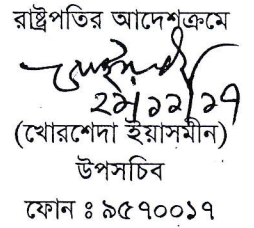 রাষ্ট্রপতির আদেশক্রমে
২১/১২/১৭
(খোরশেদা ইয়াসমীন)
উপসচিব
ফোন ঃ ৯৫৭০০১৭